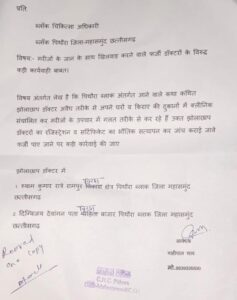 प्रति,
ब्लॉक चिकित्सा अधिकारी
ब्लॉक पिथौरा जिला-महासमुंद छत्तीसगढ़
विषय- मरीजों के जान के साथ खिलवाड़ करने वाले फर्जी डॉक्टरों के विरुद्ध
कड़ी कार्यवाही बाबत।
विषय अंतर्गत लेख है कि पिथौरा ब्लाक अंतर्गत आने वाले सभी कथित
झोलाछाप डॉक्टर अवैध तरीके से अपने घरों व किराए की दुकानों में क्लीनिक
संचालित कर मरीजों के उपचार में गलत तरीके से कर रहे हैं उक्त झोलाछाप
डॉक्टरों का रजिस्ट्रेशन व सर्टिफिकेट का भौतिक सत्यापन कर जांच कराई जावे
फर्जी पाए जाने पर कड़ी कार्रवाई की जाए
झोलाछाप डॉक्टर में
1. श्याम कुमार रात्रे रामपुर क्षेत्र पिथौरा ब्लाक जिला महासमुंद
छत्तीसगढ़
2. दिग्विजय देवांगन पता बाजार पिथौरा ब्लाक जिला महासमुंद
छत्तीसगढ़
Received
one copy
आवेदक
C.H.C. Pithora